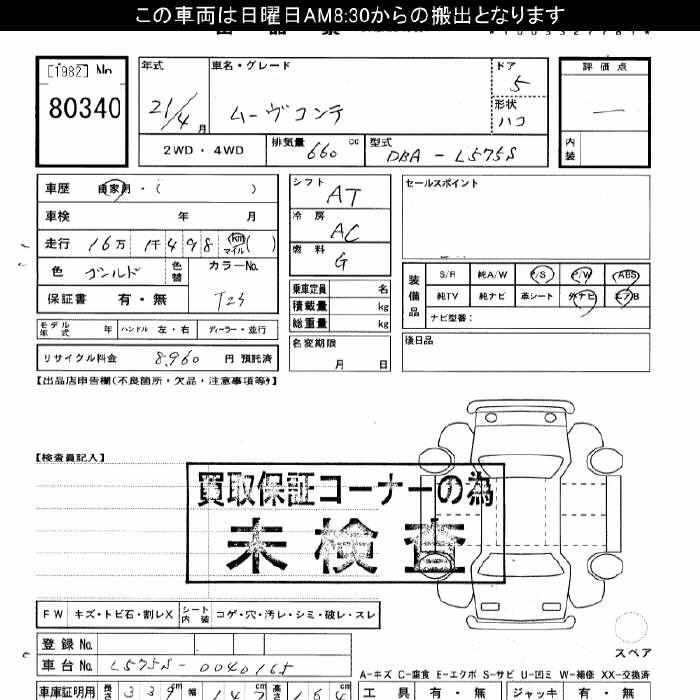 この車両は日曜日AM8:30からの搬出となります
[1982] No
80340
年式 21/4月
車名・グレード ムーヴコンテ
ドア 5
形状 ハコ
評価点 —
内装
2WD・4WD
排気量 660 cc
型式 DBA - L575S
車歴 自家用・( )
車検 年 月
走行 16万 1千498 km マイル( )
色 ゴールド 色替
カラーNo. T23
保証書 有・無
モデル年式 年 ハンドル 左・右 ディーラー・並行
リサイクル料金 8,960 円 預託済
シフト AT
冷房 AC
燃料 G
乗車定員 名
積載量 kg
総重量 kg
名変期限 月 日
セールスポイント
装備品
S/R 純A/W P/S P/W ABS
純TV 純ナビ 革シート 外ナビ エアB
ナビ型番:
後日品
【出品店申告欄(不良箇所・欠品・注意事項等)】
【検査員記入】
買取保証コーナーの為
未検査
FW キズ・トビ石・割レX シート内装 コゲ・穴・汚レ・シミ・破レ・スレ
スペア
登録 No.
車台 No. L575S-0040165
A-キズ C-腐食 E-エクボ S-サビ U-凹ミ W-補修 XX-交換済
車庫証明用 長さ 339cm 幅 147 高さ 164
工具 有・無 ジャッキ 有・無